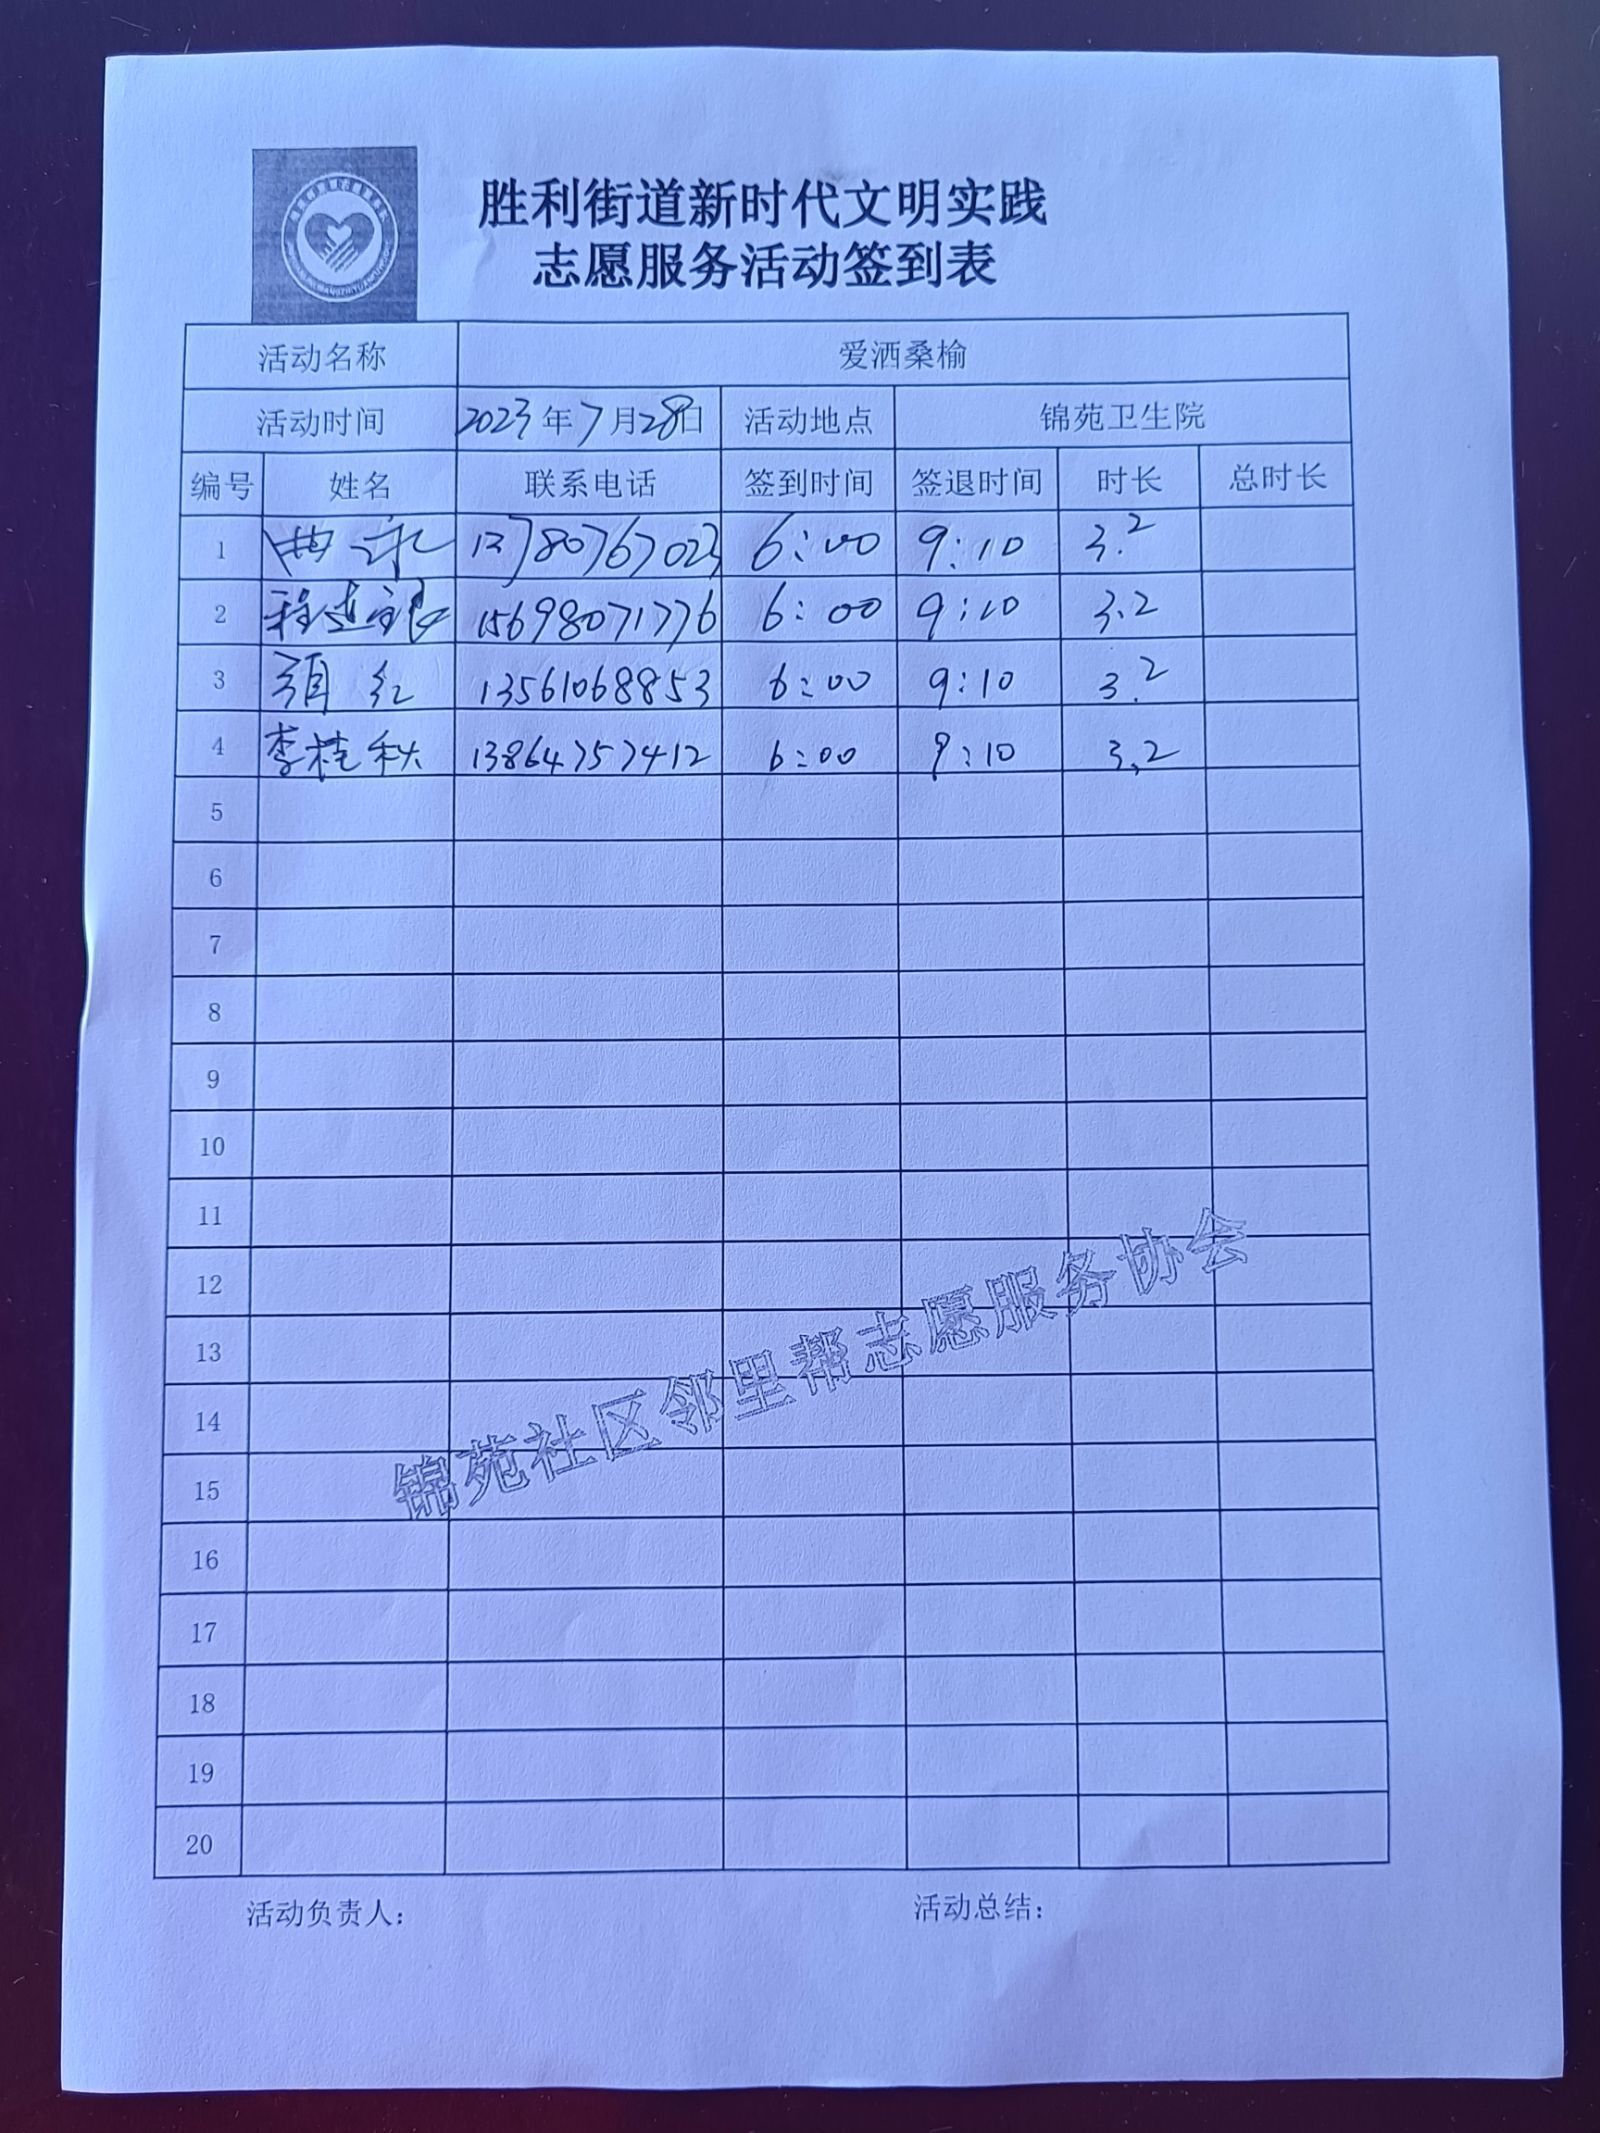 胜利街道新时代文明实践
志愿服务活动签到表
活动名称 爱洒桑榆
活动时间 2023年7月28日 活动地点 锦苑卫生院
编号 姓名 联系电话 签到时间 签退时间 时长 总时长
1 曲 13780767023 6:00 9:10 3.2
2 程 15698071776 6:00 9:10 3.2
3 红 13561068853 6:00 9:10 3.2
4 李桂秋 13864757412 6:00 9:10 3.2
5
6
7
8
9
10
11
12
13
14
15
16
17
18
19
20
锦苑社区邻里帮志愿服务协会
活动负责人： 活动总结：